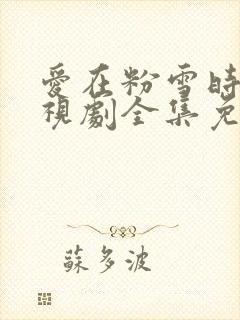 愛在粉雪時
視劇全集免
蘇多波